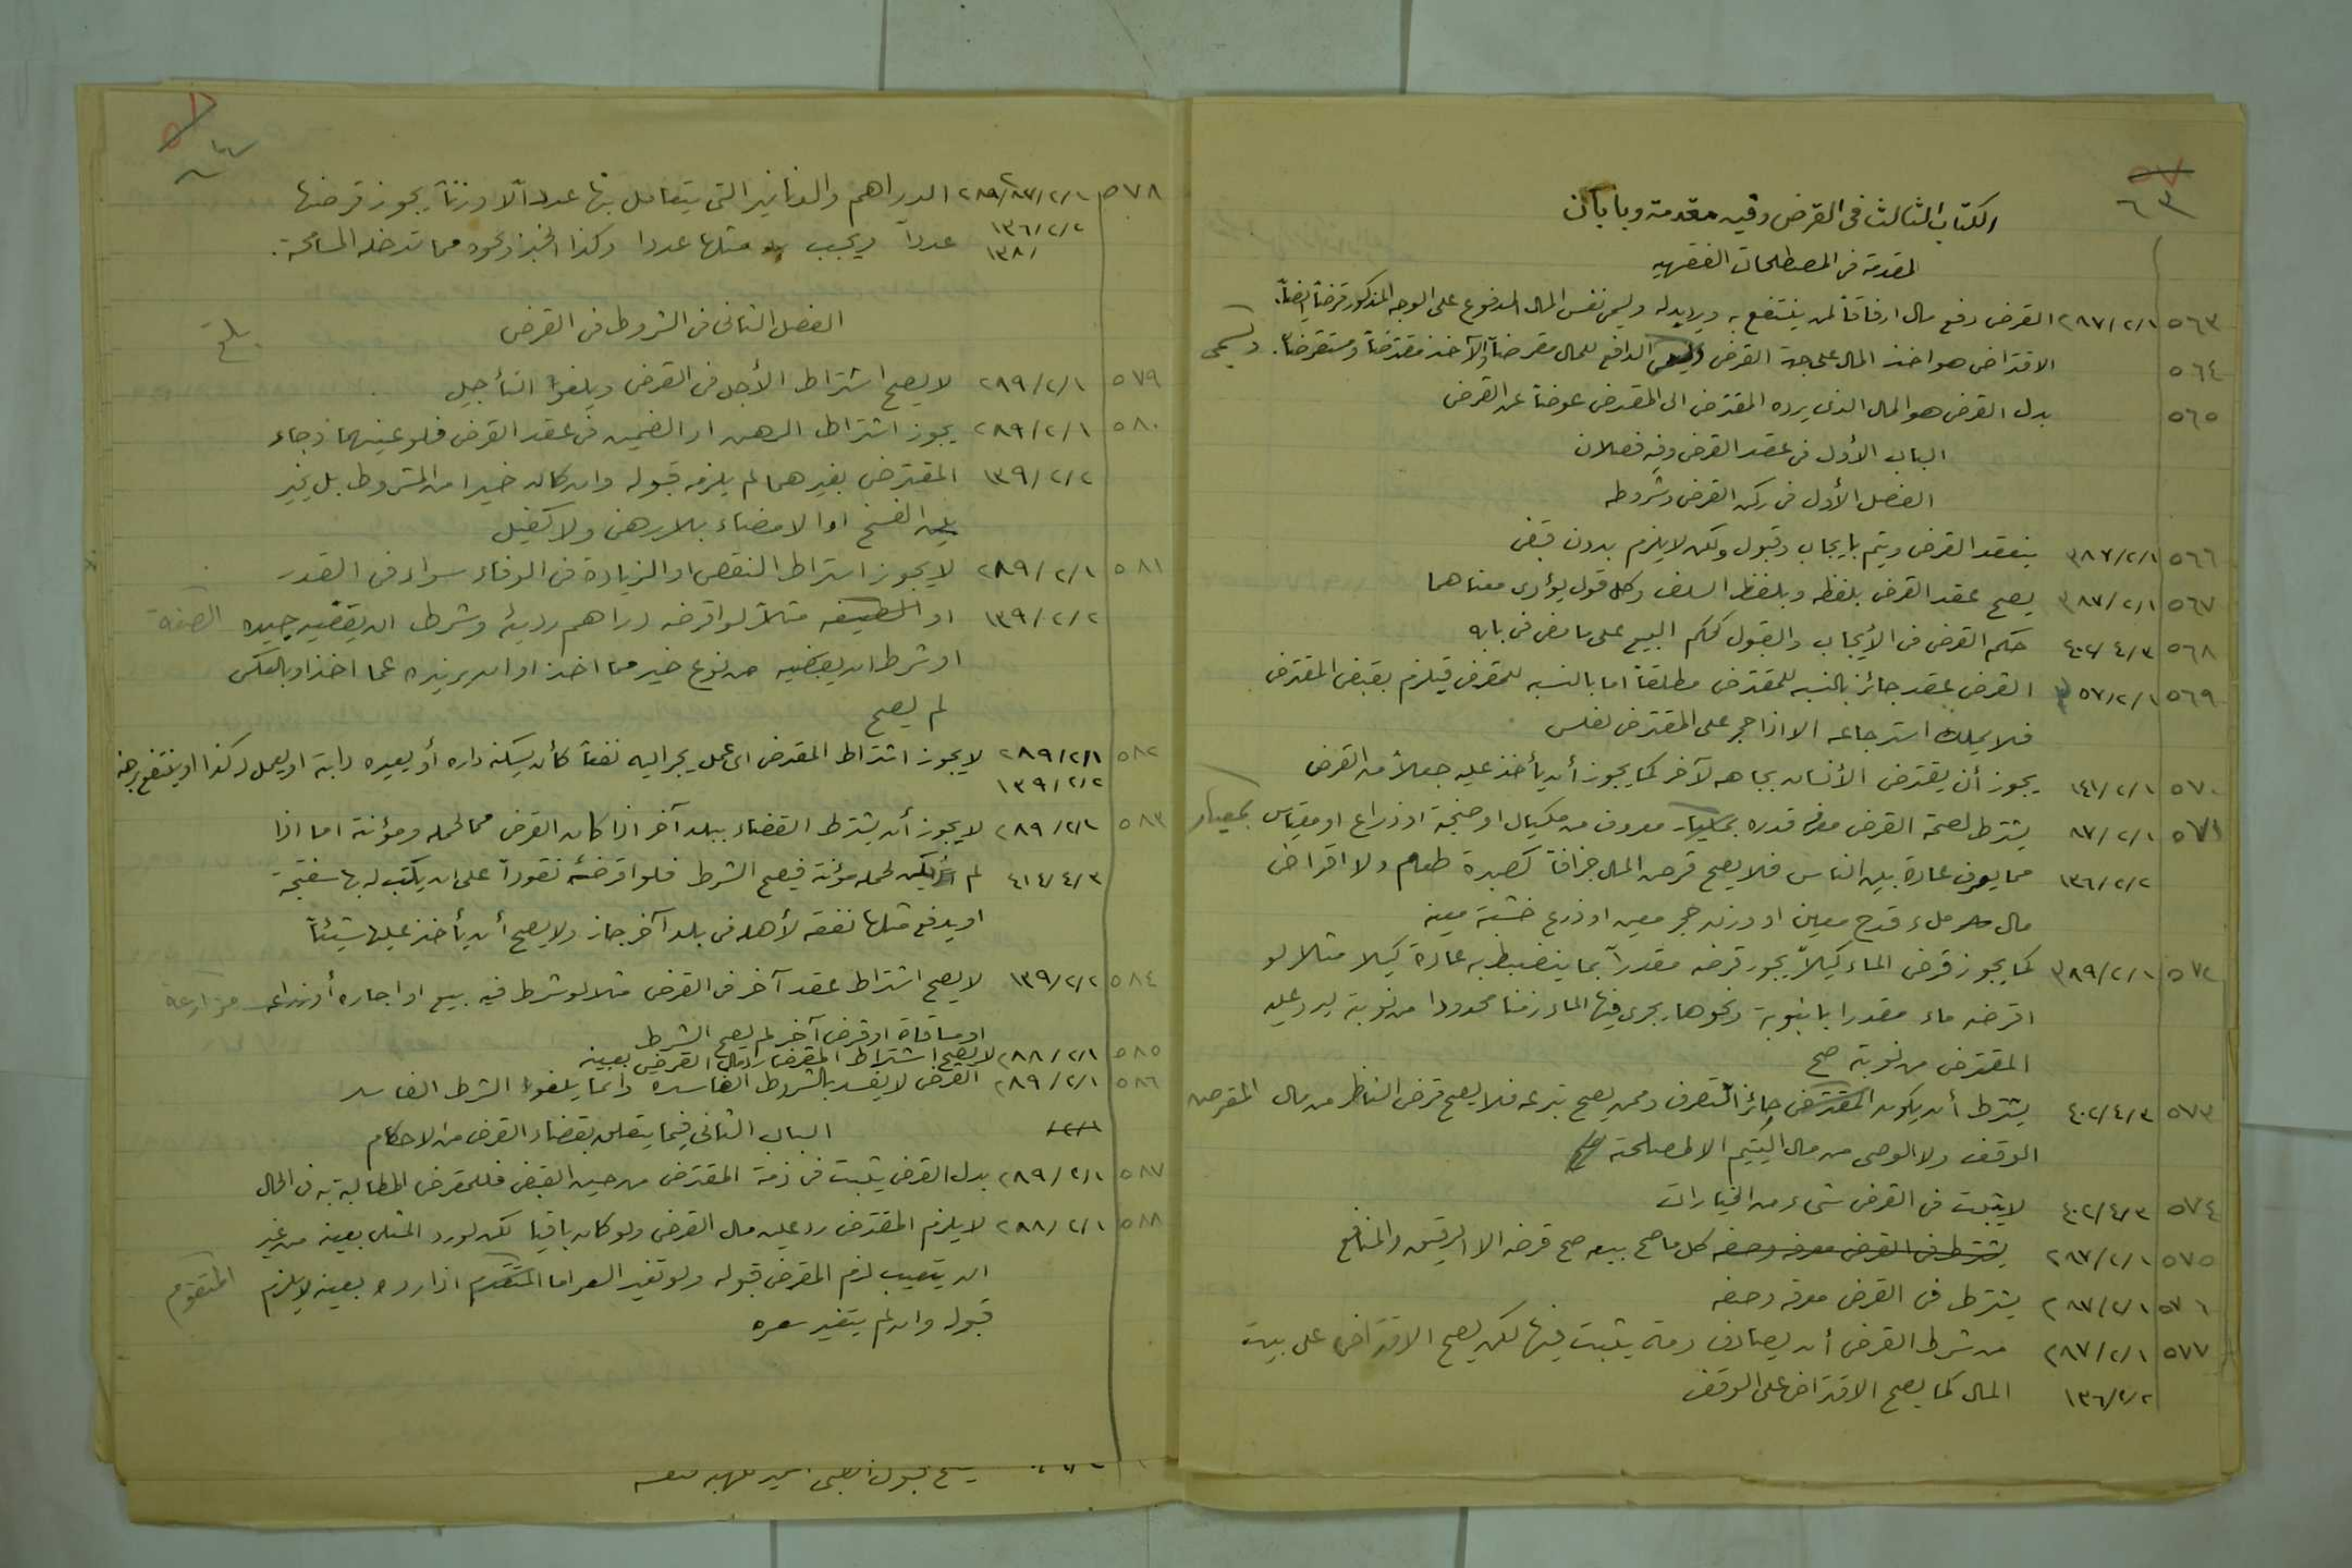 ٦٣
الكتاب الثالث فى القرض وفيه مقدمة وبابان
المقدمة فى المصطلحات الفقهيه
٥٦٣ ٢٨٧/٢/١ القرض دفع مال ارفاقاً لمن ينتفع به ويرد بدله ويسمى نفس المال المدفوع على الوجه المذكور قرضاً ايضاً.
٥٦٤ الاقتراض هو اخذ المال على جهة القرض ويسمى الدافع للمال مقرضاً والآخذ مقترضاً ومستقرضاً. ويسمى
٥٦٥ بدل القرض هو المال الذى يرده المقترض الى المقرض عوضاً عن القرض
الباب الأول فى عقد القرض وفيه فصلان
الفصل الأول فى ركن القرض وشروطه
٥٦٦ ٣٨٧/٢/١ ينعقد القرض ويتم بايجاب وقبول ولكن لا يلزم بدون قبض
٥٦٧ ٣٨٧/٢/١ يصح عقد القرض بلفظه وبلفظ السلف وكل قول يؤدى معناهما
٥٦٨ ٤٠٢/٤/٣ حكم القرض فى الأيجاب والقبول كحكم البيع على ما مضى فى بابه
٥٦٩ ٥٧/٢/١ القرض عقد جائز بالنسبه للمقترض مطلقاً اما بالنسبه للمقرض فيلزم بقبض المقترض
فلا يملك استرجاعه الا اذا حجر على المقترض لفلس
٥٧٠ ١٤١/٢/١ يجوز أن يقترض الأنسان بجاهه لآخر كما يجوز أن يأخذ عليه جعلاً من القرض
٥٧١ ٨٧/٢/١ يشترط لصحة القرض معرفة قدره بمكيال معروف من مكيال او صنجة او ذراع او مقياس بمعيار
١٣٦/٢/٢ مما يعرف عادة بين الناس فلا يصح قرض المال جزافاً كصبرة طعام ولا اقراض
مال ملء قدح معين او وزن حجر معين او ذرع خشبة معينه
٥٧٢ ٣٨٩/٢/١ كما يجوز قرض الماء كيلاً يجوز قرضه مقدراً بما ينضبط به عادة كيلا مثلا لو
اقرضه ماء مقدرا بانبوبة ونحوها يجرى فيها الماء زمنا محدودا من نوبة ليرد عليه
المقترض من نوبته صح
٥٧٣ ٤٠٢/٤/٣ يشترط أن يكون المقترض جائز التصرف وممن يصح تبرعه فلا يصح قرض الناظر من مال المقرض
الوقف ولا الوصى من مال اليتيم الا لمصلحة
٥٧٤ ٤٠٢/٤/٣ لا يثبت فى القرض شىء من الخيارات
٥٧٥ ٢٨٧/٢/١ يشترط فى القرض معرفة وصفه كل ما صح بيعه صح قرضه الا الرقيق والمنافع
٥٧٦ ٢٨٧/٢/١ يشترط فى القرض معرفة وصفه
٥٧٧ ٢٨٧/٢/١ من شرط القرض أن يصادف ذمة يثبت فيها لكن يصح الاقتراض على بيت
١٣٦/٢/٢ المال كما يصح الاقتراض على الوقف
٥٧٨ ٢٨٩/٨٧/٢/١ الدراهم والدنانير التى يتعامل بها عدداً لا وزناً يجوز قرضها
١٣٦/٢/٢
١٣٨/ عدداً ويجب مثلها عددا وكذا الخبز ونحوه مما تدخله المسامحة.
الفصل الثانى فى الشروط فى القرض
بلغ
٥٧٩ ٢٨٩/٢/١ لا يصح اشتراط الأجل فى القرض ويلغوا التأجيل
٥٨٠ ٢٨٩/٢/١ يجوز اشتراط الرهن او الضمين فى عقد القرض فلو عينهما وجاء
١٣٩/٢/٢ المقترض بغيرهما لم يلزمه قبوله وان كان خيرا من المشروط بل يخير
بين الفسخ او الامضاء بلا رهن ولا كفيل
٥٨١ ٢٨٩/٢/١ لا يجوز اشتراط النقص او الزيادة فى الوفاء سواء فى القدر
١٣٩/٢/٢ او الصفة مثلاً لو اقرضه دراهم رديئه وشرط ان يقضيه جيده الصفة
او شرط ان يقضيه من نوع خير مما اخذ او ان يزيده عما اخذ او بالعكس
لم يصح
٥٨٢ ٢٨٩/٢/١ لا يجوز اشتراط المقرض اى عمل يجر اليه نفعاً كأن يسكنه داره أو يعيره دابة او يعمل له كذا او ينتفع برهنه
١٣٩/٢/٢
٥٨٣ ٢٨٩/٢/١ لا يجوز أن يشترط القضاء ببلد آخر اذا كان القرض مما لحمله ومؤنة اما اذا
٤١٤/٤/٣ لم يكن لحمله مؤنة فيصح الشرط فلو اقرضه نقوداً على ان يكتب له بها سفتجة
او يدفع مثلها نفقة لأهله فى بلد آخر جاز ولا يصح أن يأخذ عليها شيئاً
٥٨٤ ١٣٩/٢/٢ لا يصح اشتراط عقد آخر فى القرض مثلا لو شرط فيه بيع او اجاره أو مزارعة
او مساقاة او قرض آخر لم يصح الشرط
٥٨٥ ٢٨٨/٢/١ لا يصح اشتراط المقرض رد مال القرض بعينه
٥٨٦ ٢٨٩/٢/١ القرض لا يفسد بالشروط الفاسده وانما يلغوا الشرط الفاسد
الباب الثانى فيما يتعلق بقضاء القرض من الاحكام
٥٨٧ ٢٨٩/٢/١ بدل القرض يثبت فى ذمة المقترض من حين القبض فللمقرض المطالبة به فى الحال
٥٨٨ ٢٨٨/٢/١ لا يلزم المقترض رد عين مال القرض ولو كان باقيا لكن لو رد المثلى بعينه من غير
ان يتعيب لزم المقرض قبوله ولو تغير السعر اما المتقدم اذا رده بعينه لا يلزم المتقوم
قبوله وان لم يتغير سعره